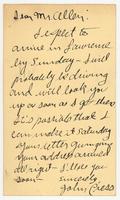 Dear Mr. Allen:
I expect to
arrive in Lawrence
by Sunday - I will
probably be driving
and will look you
up as soon as I get there
It is possible that I
can make it Saturday
Your letter giving
your address arrived
all right - I'll see you
soon - Sincerely
John